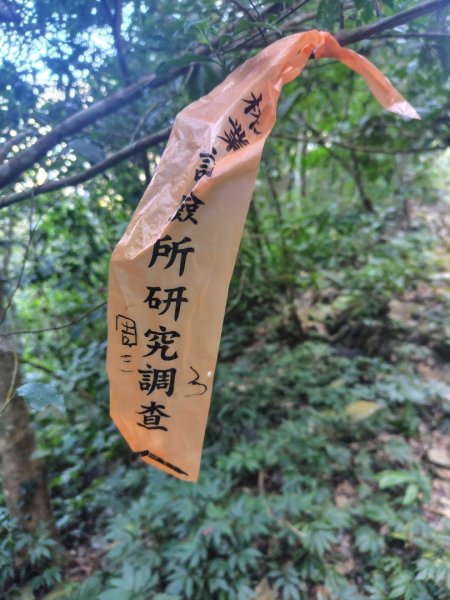 林業試驗所研究調查
周三